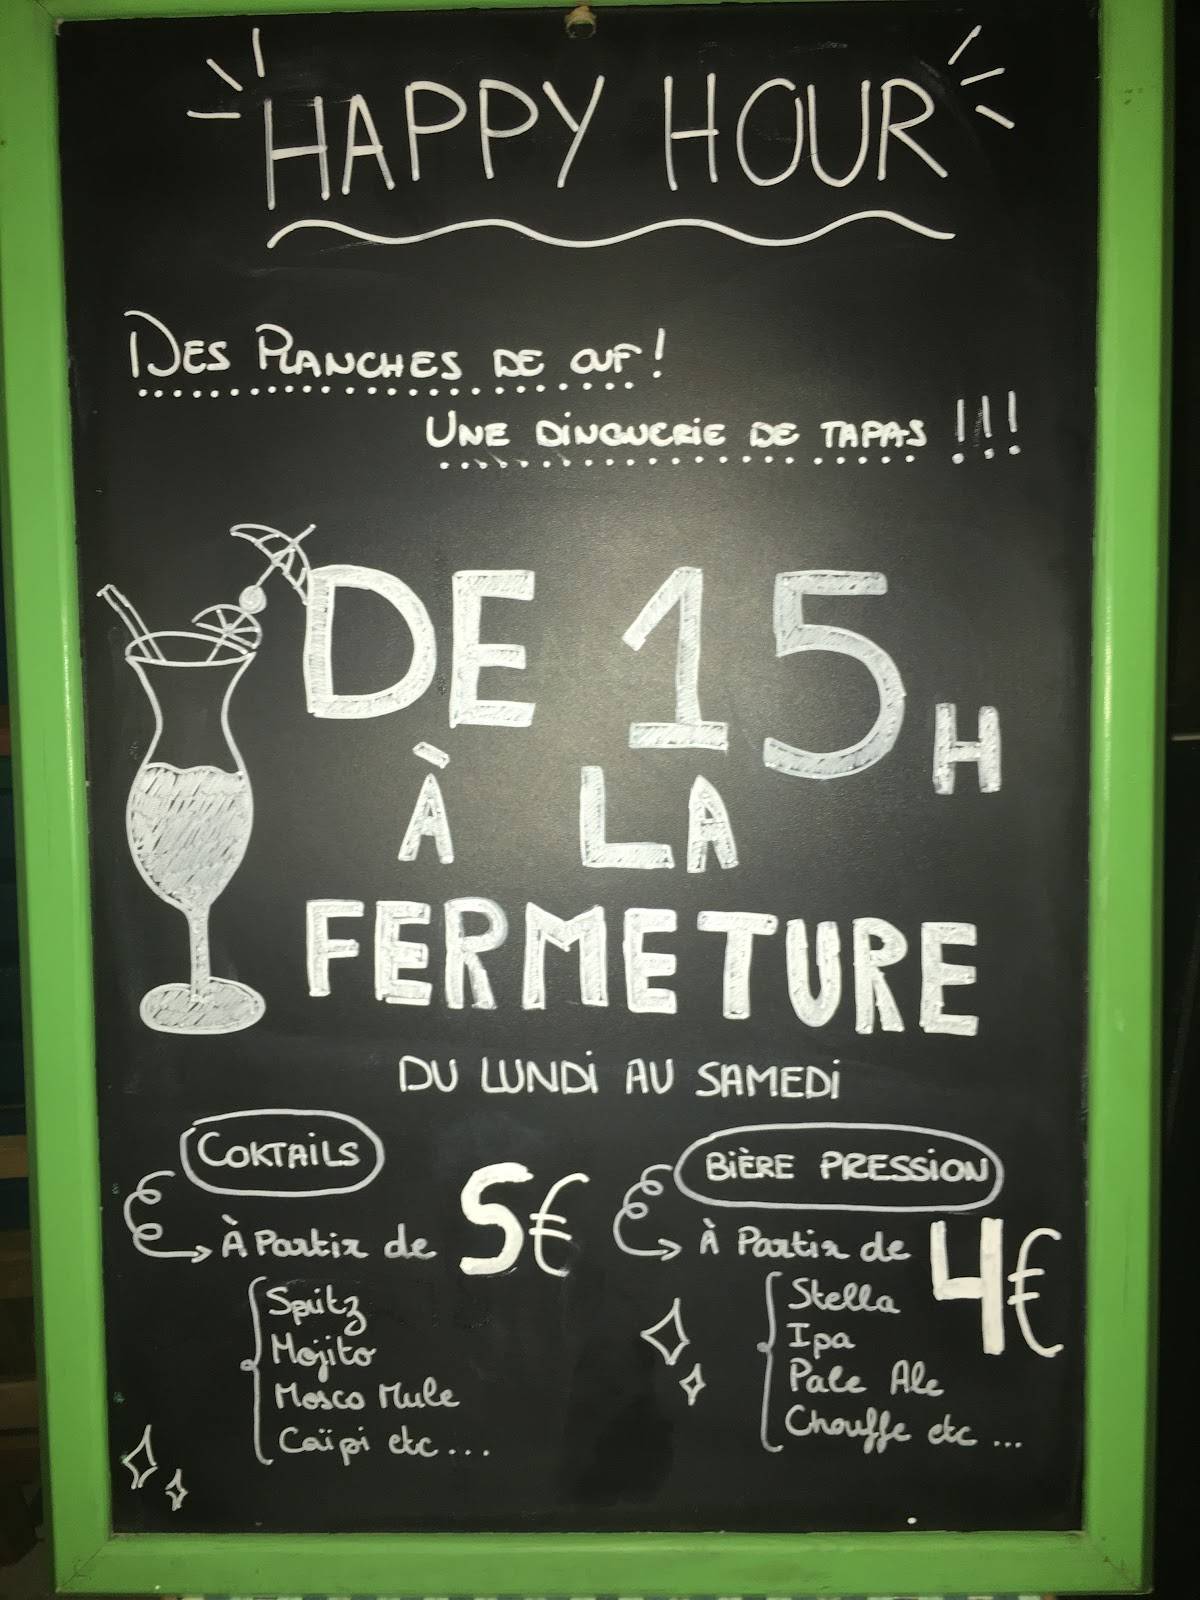 HAPPY HOUR
DES PLANCHES DE OUF !
UNE DINGUERIE DE TAPAS !!!
DE 15H
À LA
FERMETURE
DU LUNDI AU SAMEDI
COKTAILS
À Partir de 5€
Spritz
Mojito
Mosco Mule
Caïpi etc...
BIÈRE PRESSION
À Partir de 4€
Stella
Ipa
Pale Ale
Chouffe etc...